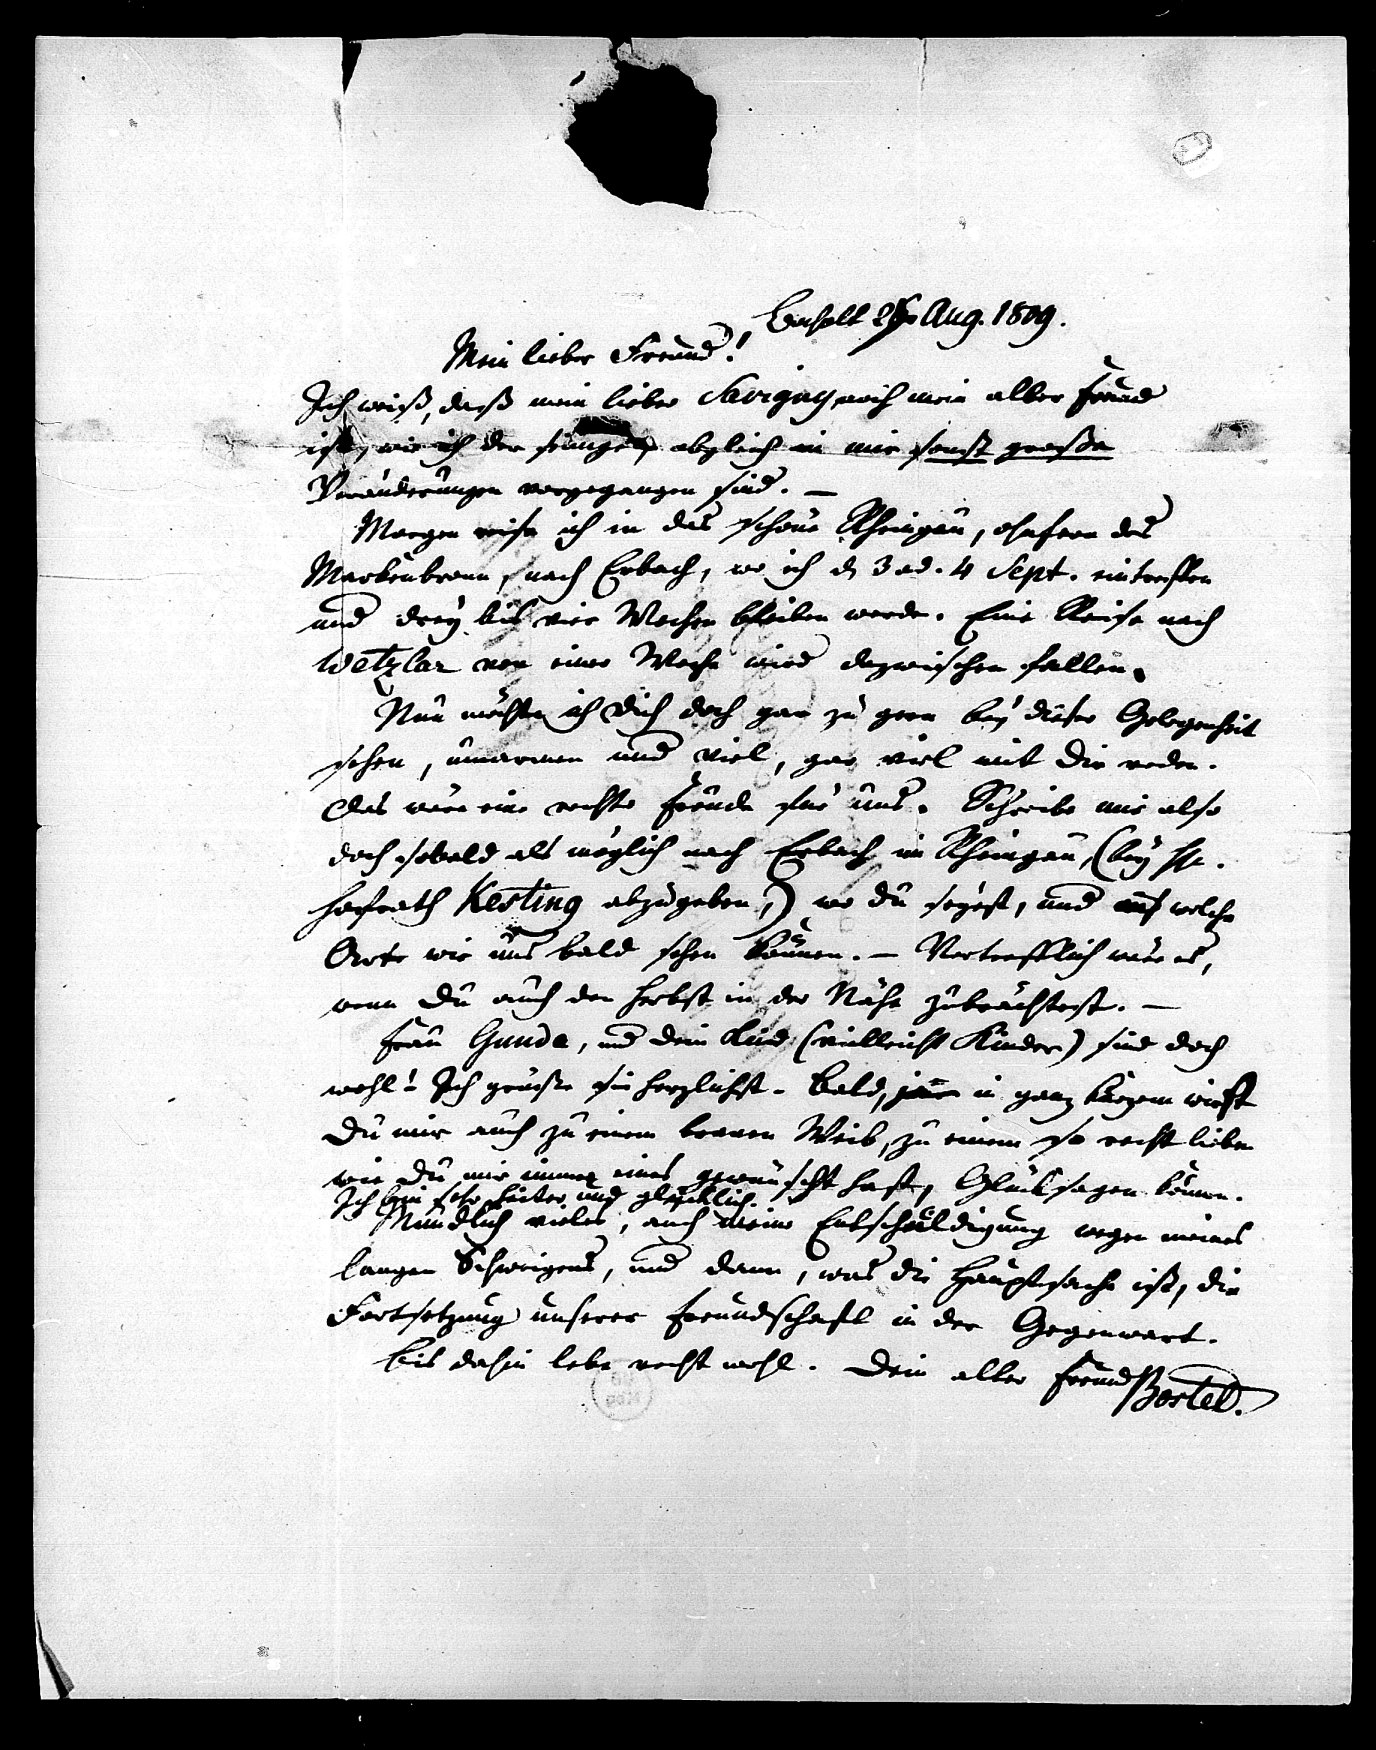 Bocholt 26 Aug. 1809.
Mein lieber Freund!
Ich weiß, daß mein lieber Savigny noch mein alter Freund
ist, wie ich der seinige, obgleich in mir sonst große
Veränderungen vorgegangen sind. —
Morgen reise ich in das schöne Rheingau, ohnfern des
Markenbronn, nach Erbach, wo ich d 3 od. 4 Sept. eintreffen
und drey bis vier Wochen bleiben werde. Eine Reise nach
Wetzlar von einer Woche wird dazwischen fallen.
Nun möchte ich Dich doch gar zu gern bey dieser Gelegenheit
sehen, umarmen und viel, gar viel mit Dir reden.
Das wäre eine rechte Freude für uns. Schreibe mir also
doch sobald als möglich nach Erbach im Rheingau, (bey Hr.
Hofrath Kesting abzugeben,) wo Du seyest, und auf welche
Art wir uns bald sehen können. — Vortrefflich wäre es,
wenn Du auch den Herbst in der Nähe zubrächtest. —
Frau Gunda, und Dein Kind (vielleicht Kinder) sind doch
wohl? Ich grüße sie herzlichst. Bald, in ganz kurzem wirst
Du mir auch zu einem braven Weib, zu einem so recht lieben
wie Du mir immer eines gewünscht hast, Glück sagen können.
Ich bin sehr heiter und glücklich.
Mündlich vieles, auch meine Entschuldigung wegen meines
langen Schweigens, und dann, was die Hauptsache ist, die
Fortsetzung unserer Freundschaft in der Gegenwart.
Bis dahin lebe recht wohl. Dein alter Freund
Bostel.